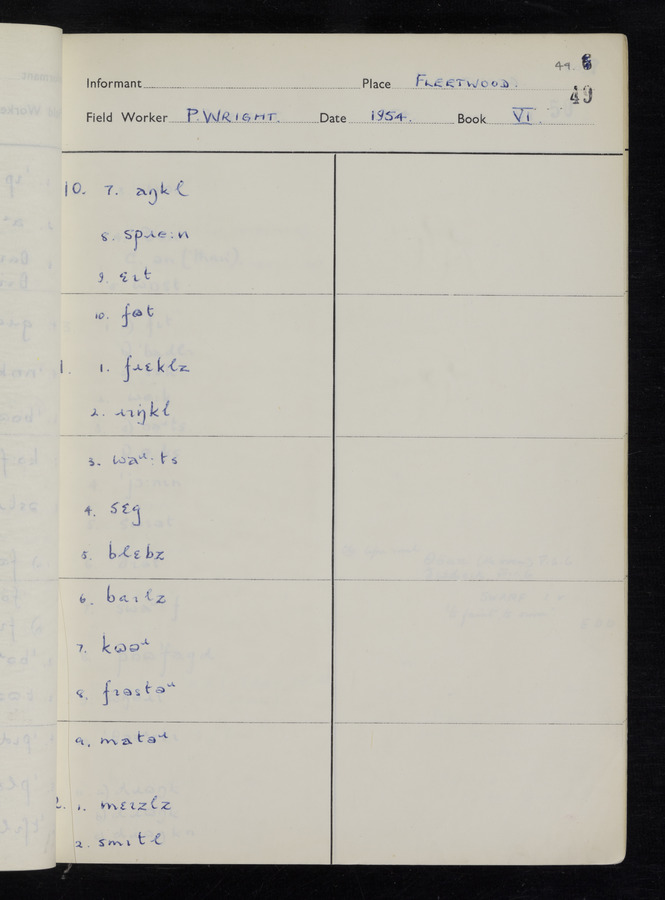 49. 6
49
Informant
Place FLEETWOOD.
Field Worker P. WRIGHT. Date 1954. Book VI.
10. 7. aŋkl
8. spɹe:n
9. ɛɪt
10. fʊt
1. 1. fɹɛklz
2. ɹɪŋkl
3. waᶦ:ts
4. sɛg
5. blɛbz
6. baɪlz
7. kʊəᶦ
8. fɪəstəᶦ
9. matəᶦ
2. 1. mɛɪzlz
2. smɪtl